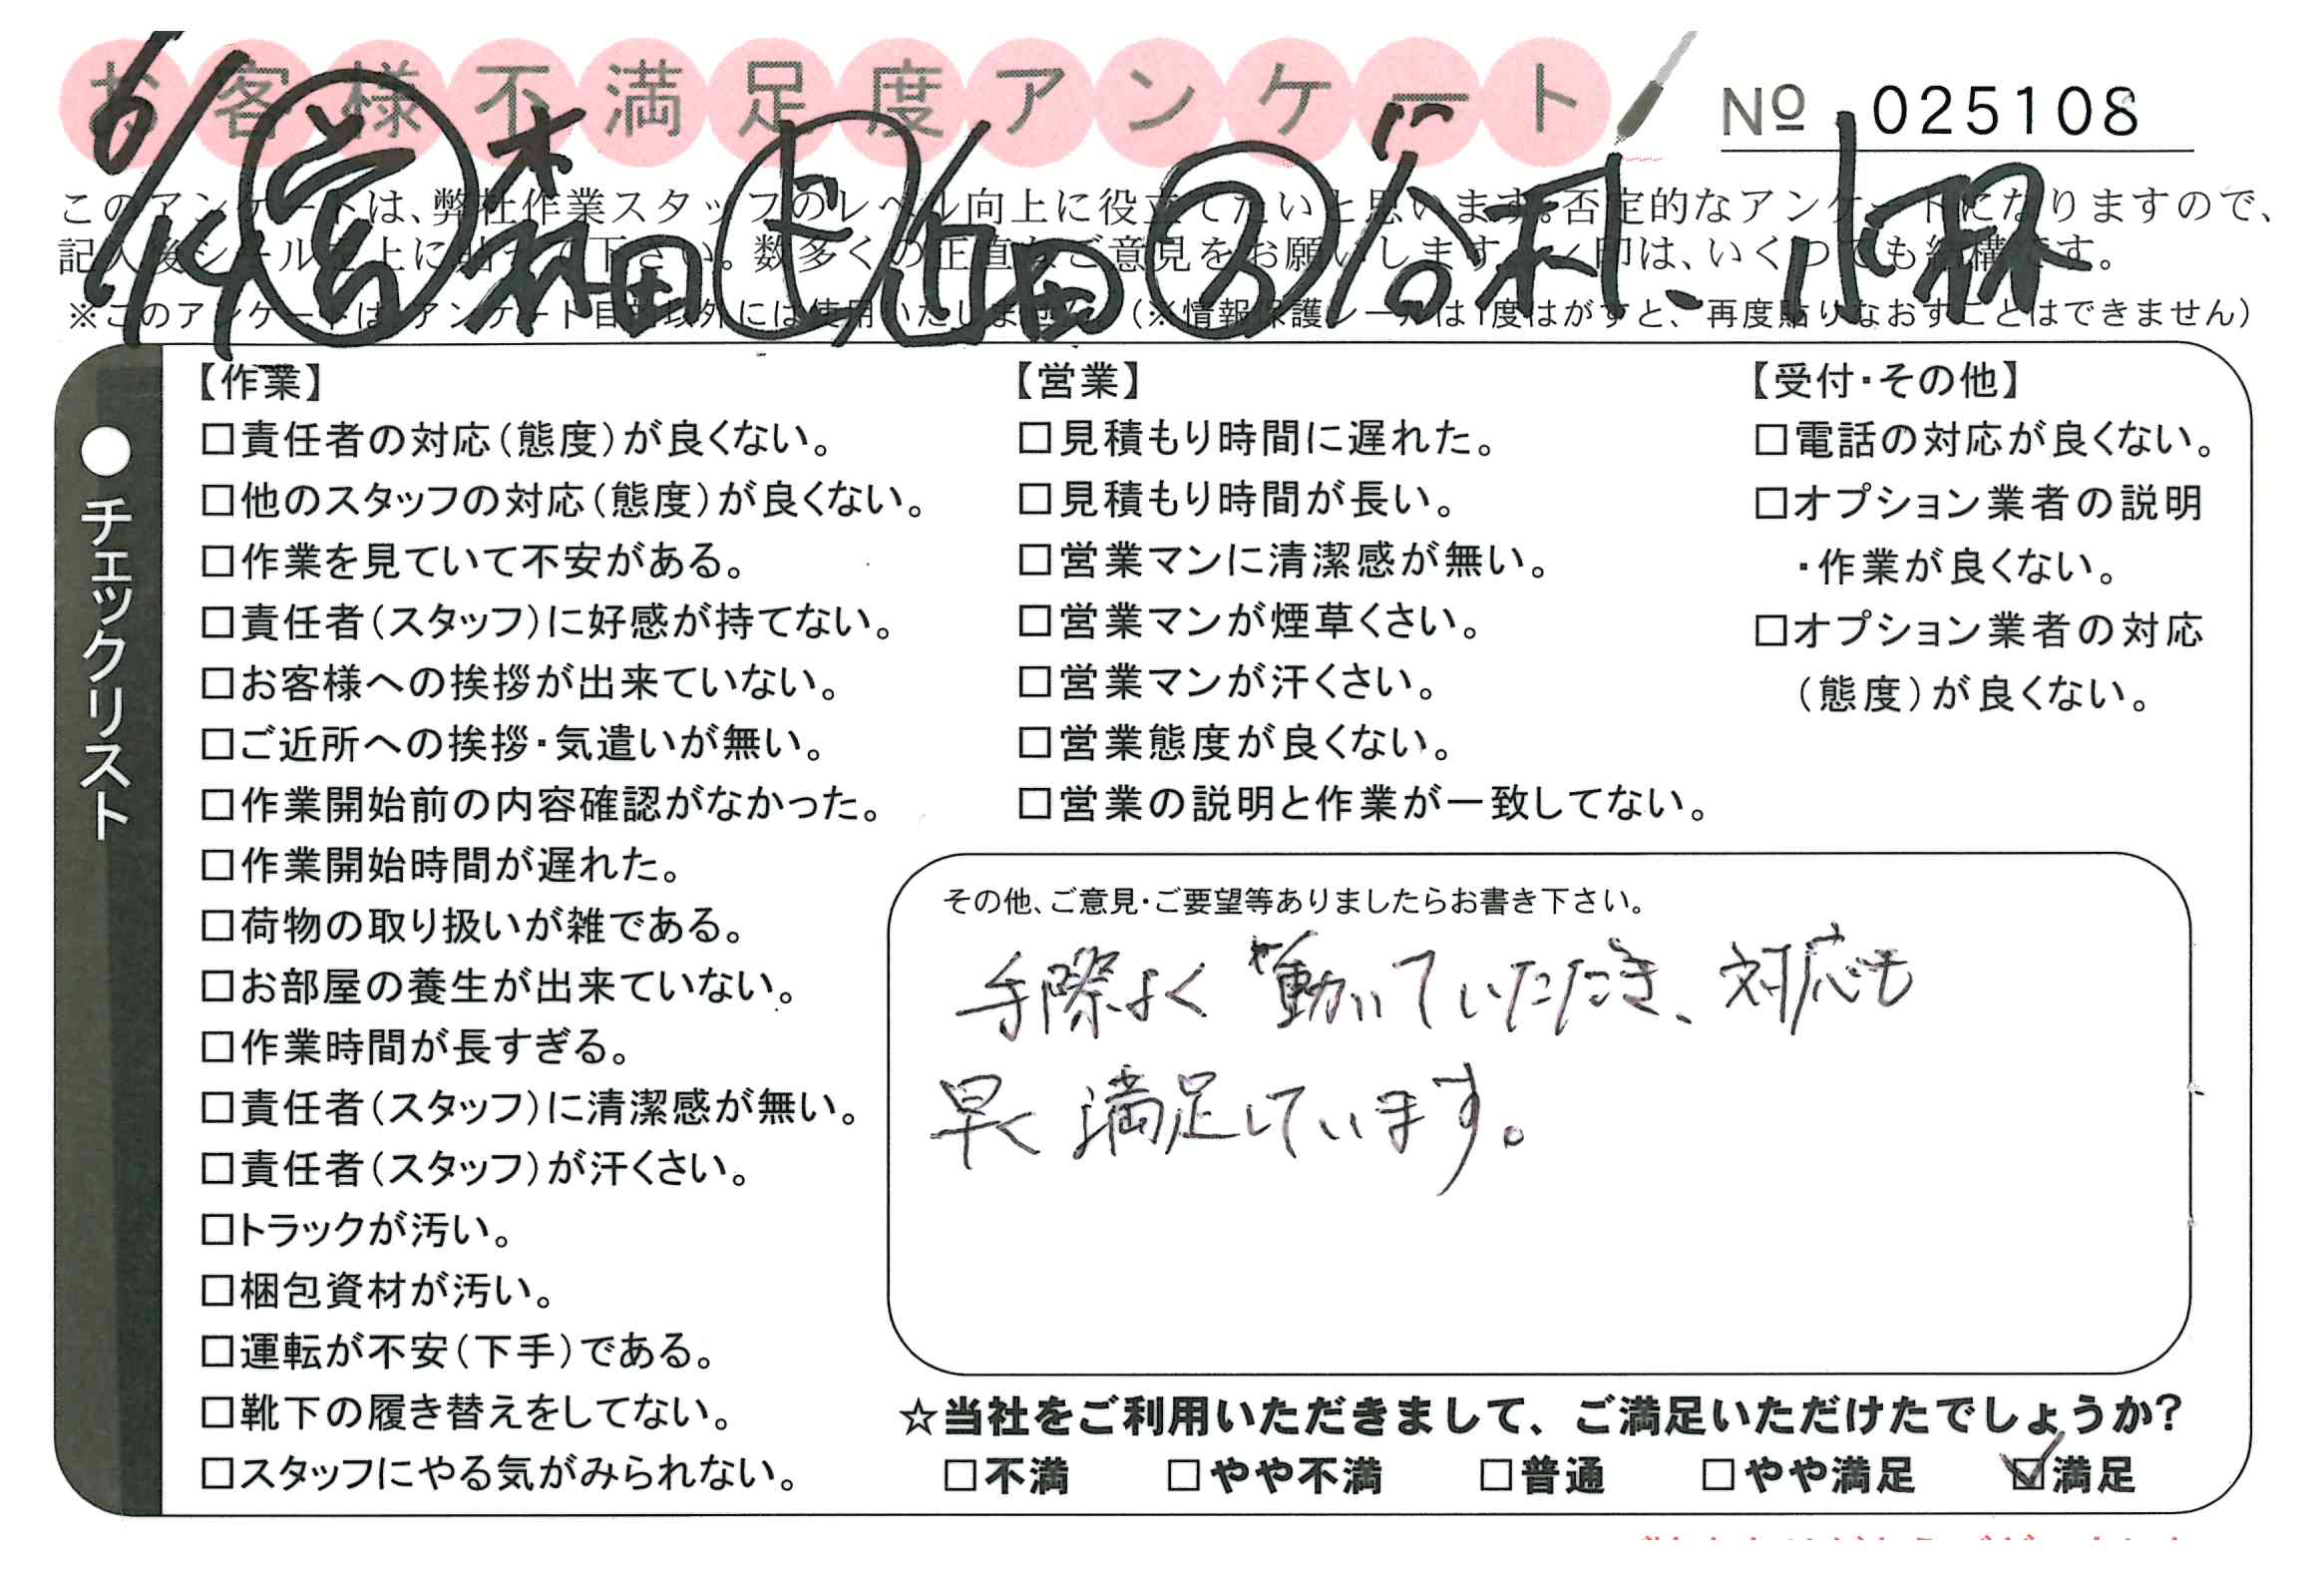 お客様不満足度アンケート
№ 025108
6/14 営 森田 ド 池田 ス 谷利、小林
このアンケートは、弊社作業スタッフのレベル向上に役立てたいと思います。否定的なアンケートになりますので、
記入後シールを上に貼って下さい。数多くの正直なご意見をお願いします。✓印は、いくつでも結構です。
※このアンケートは、アンケート目的以外には使用いたしません。（※情報保護シールは1度はがすと、再度貼りなおすことはできません）
●チェックリスト
【作業】
□責任者の対応（態度）が良くない。
□他のスタッフの対応（態度）が良くない。
□作業を見ていて不安がある。
□責任者（スタッフ）に好感が持てない。
□お客様への挨拶が出来ていない。
□ご近所への挨拶・気遣いが無い。
□作業開始前の内容確認がなかった。
□作業開始時間が遅れた。
□荷物の取り扱いが雑である。
□お部屋の養生が出来ていない。
□作業時間が長すぎる。
□責任者（スタッフ）に清潔感が無い。
□責任者（スタッフ）が汗くさい。
□トラックが汚い。
□梱包資材が汚い。
□運転が不安（下手）である。
□靴下の履き替えをしてない。
□スタッフにやる気がみられない。
【営業】
□見積もり時間に遅れた。
□見積もり時間が長い。
□営業マンに清潔感が無い。
□営業マンが煙草くさい。
□営業マンが汗くさい。
□営業態度が良くない。
□営業の説明と作業が一致してない。
【受付・その他】
□電話の対応が良くない。
□オプション業者の説明
・作業が良くない。
□オプション業者の対応
（態度）が良くない。
その他、ご意見・ご要望等ありましたらお書き下さい。
手際よく動いていただき、対応も
早く満足しています。
☆当社をご利用いただきまして、ご満足いただけたでしょうか？
□不満 □やや不満 □普通 □やや満足 ☑満足